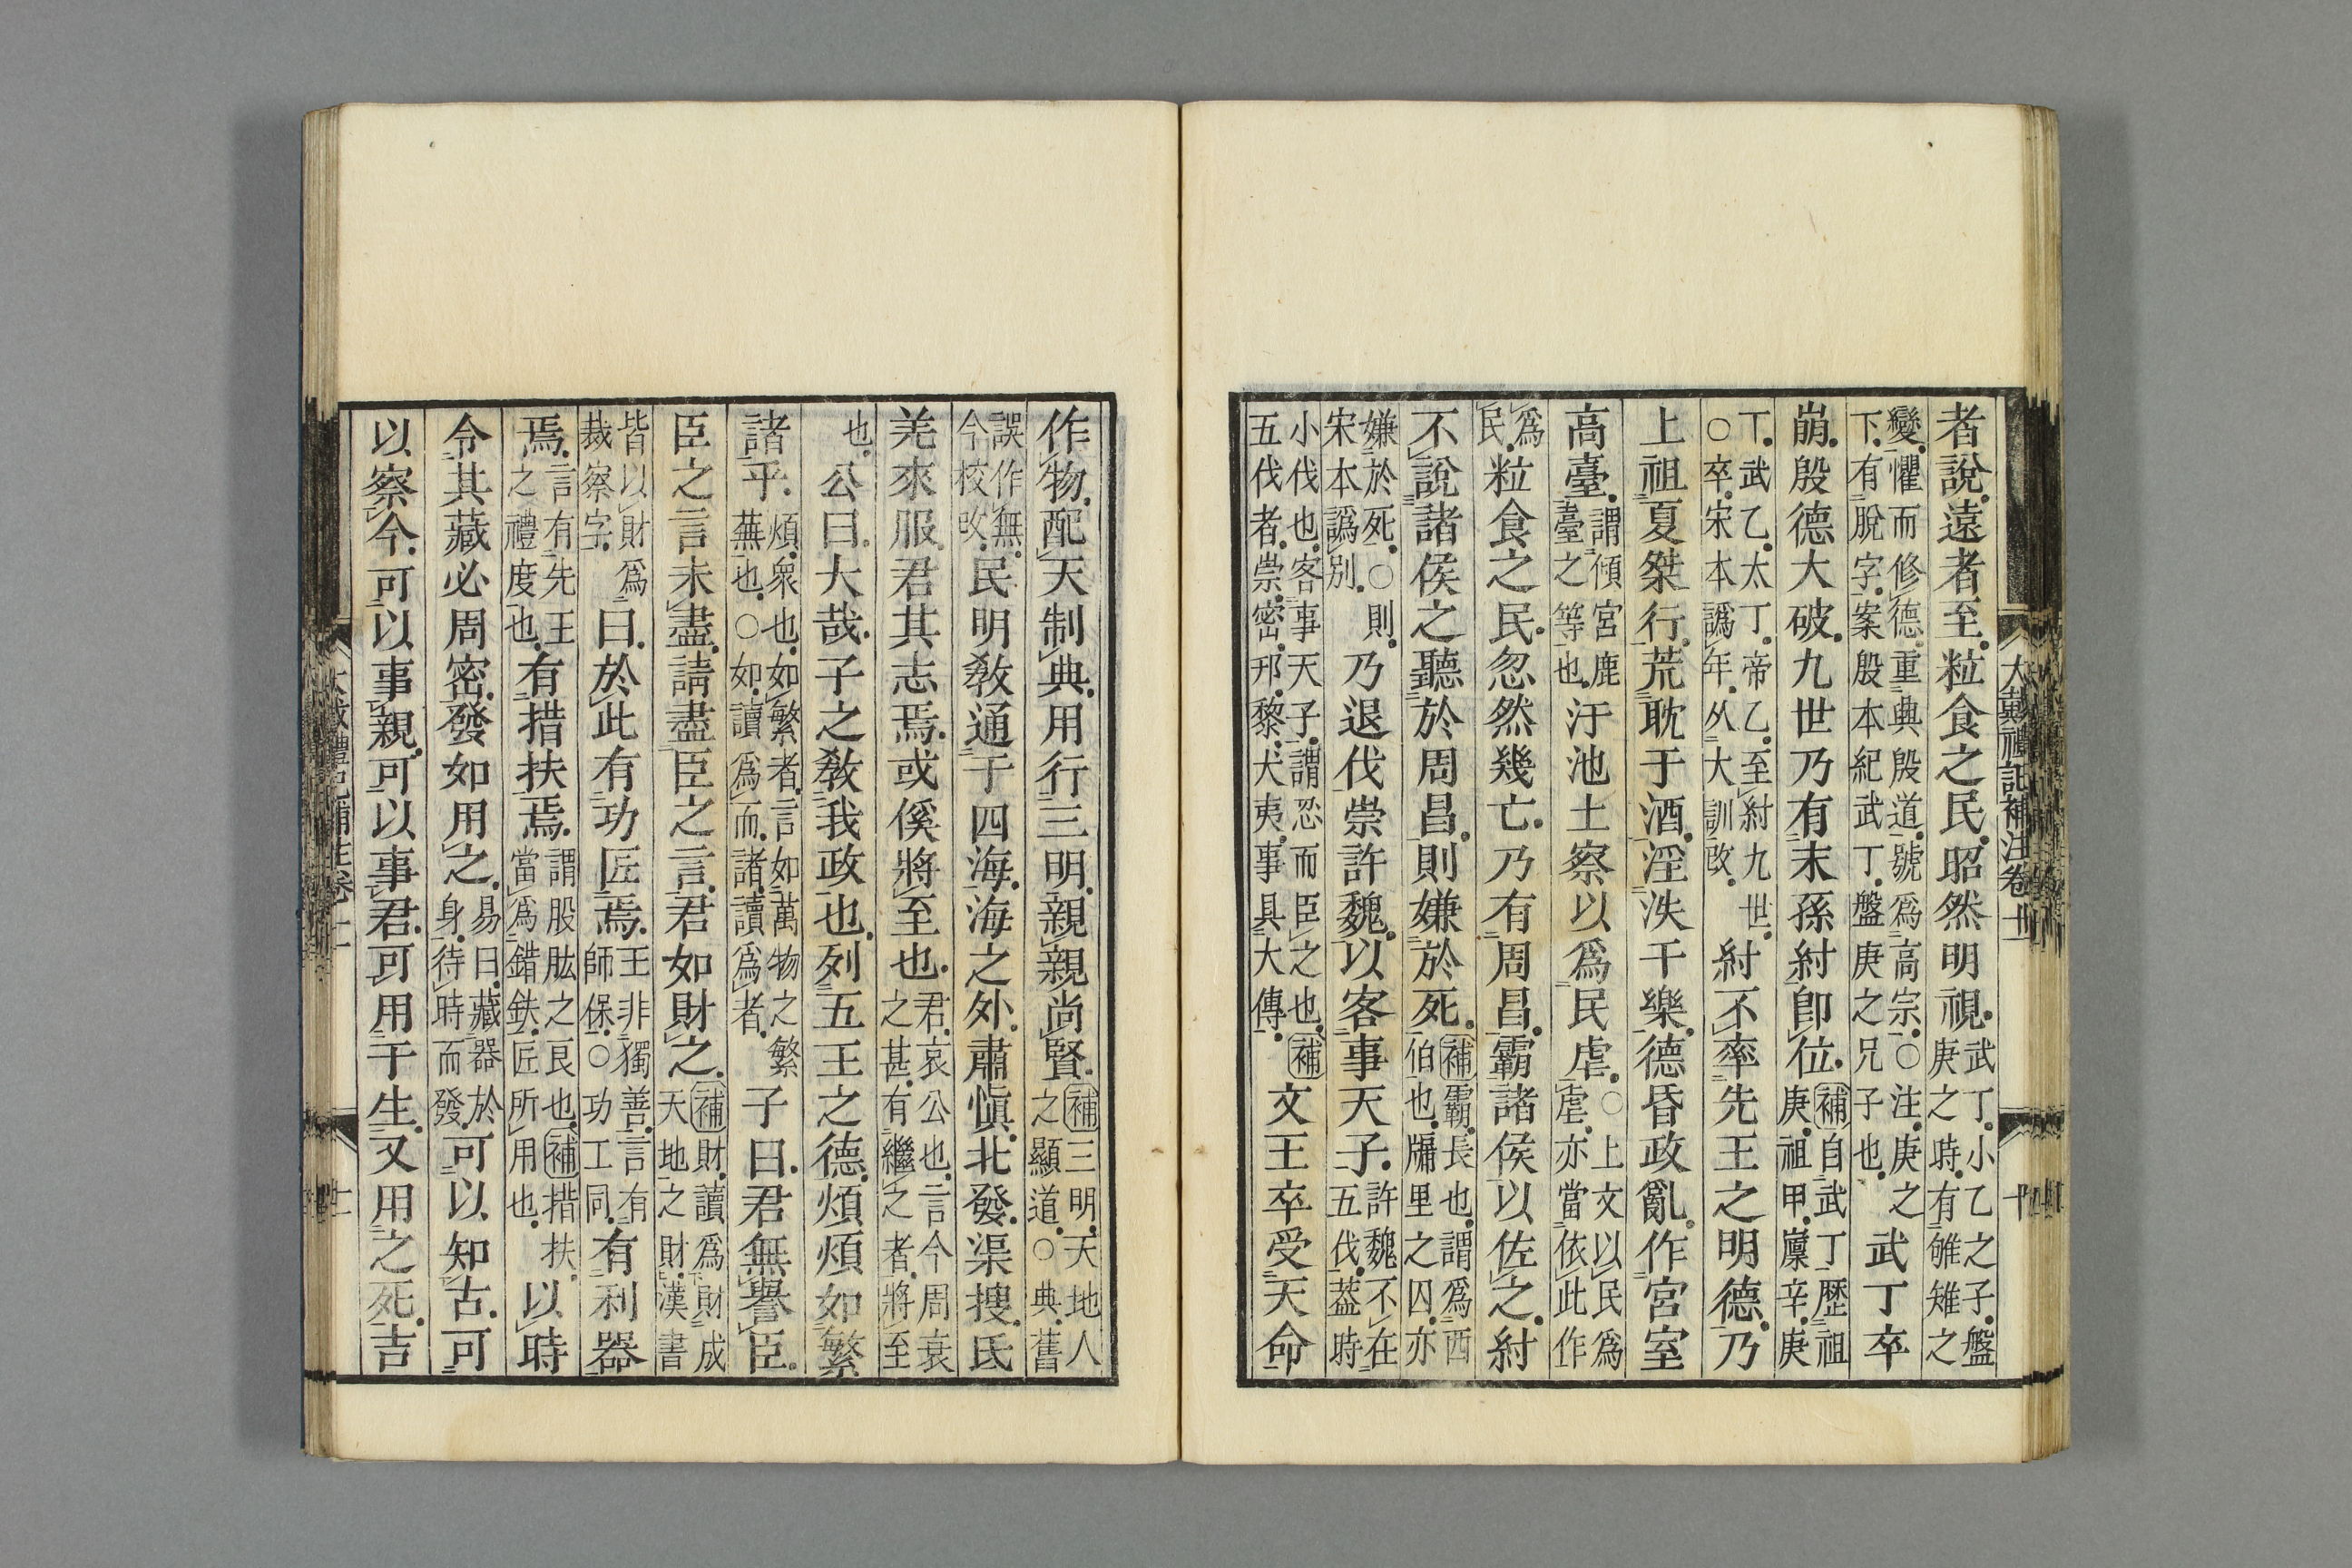 者說遠者至粒食之民昭然明視武丁小乙之子盤庚之時有雊雉之
變懼而修德重興殷道號爲高宗○注庚之下有脫字案殷本紀武丁盤庚之兄子也武丁卒
崩殷德大破九世乃有末孫紂卽位補自武丁歷祖庚祖甲廩辛庚
丁武乙太丁帝乙至紂九世○卒宋本譌年从大訓改紂不率先王之明德乃
上祖夏桀行荒耽于酒淫泆于樂德昏政亂作宮室
高臺謂傾宮鹿臺之等也汙池土察以爲民虐○上文以民爲虐亦當依此作
爲民粒食之民忽然幾亡乃有周昌霸諸侯以佐之紂
不說諸侯之聽於周昌則嫌於死補霸長也謂爲西伯也牖里之囚亦
嫌於死○則宋本譌別乃退伐崇許魏以客事天子許魏不在五伐蓋時
小伐也客事天子謂忍而臣之也五伐者崇密邘黎犬夷事具大傳補文王卒受天命
大戴禮記補注卷十一 十
作物配天制典用行三明親親尚賢補三明天地人之顯道○典舊
誤作無今校改民明教通于四海海之外肅愼北發渠搜氐
羌來服君其志焉或徯將至也君哀公也言今周衰之甚有繼之者將至
也公曰大哉子之敎我政也列五王之德煩煩如繁
諸乎煩衆也如繁者言如萬物之繁蕪也○如讀爲而諸讀爲者子曰君無譽臣
臣之言未盡請盡臣之言君如財之補財讀爲財成天地之財漢書
皆以財爲裁察字曰於此有功匠焉王非獨善言有師保○功工同有利器
焉言有先王之禮度也有措扶焉謂股肱之良也補措扶當爲錯鈇匠所用也以時
令其藏必周密發如用之易曰藏器於身待時而發可以知古可
以察今可以事親可以事君可用于生又用之死吉